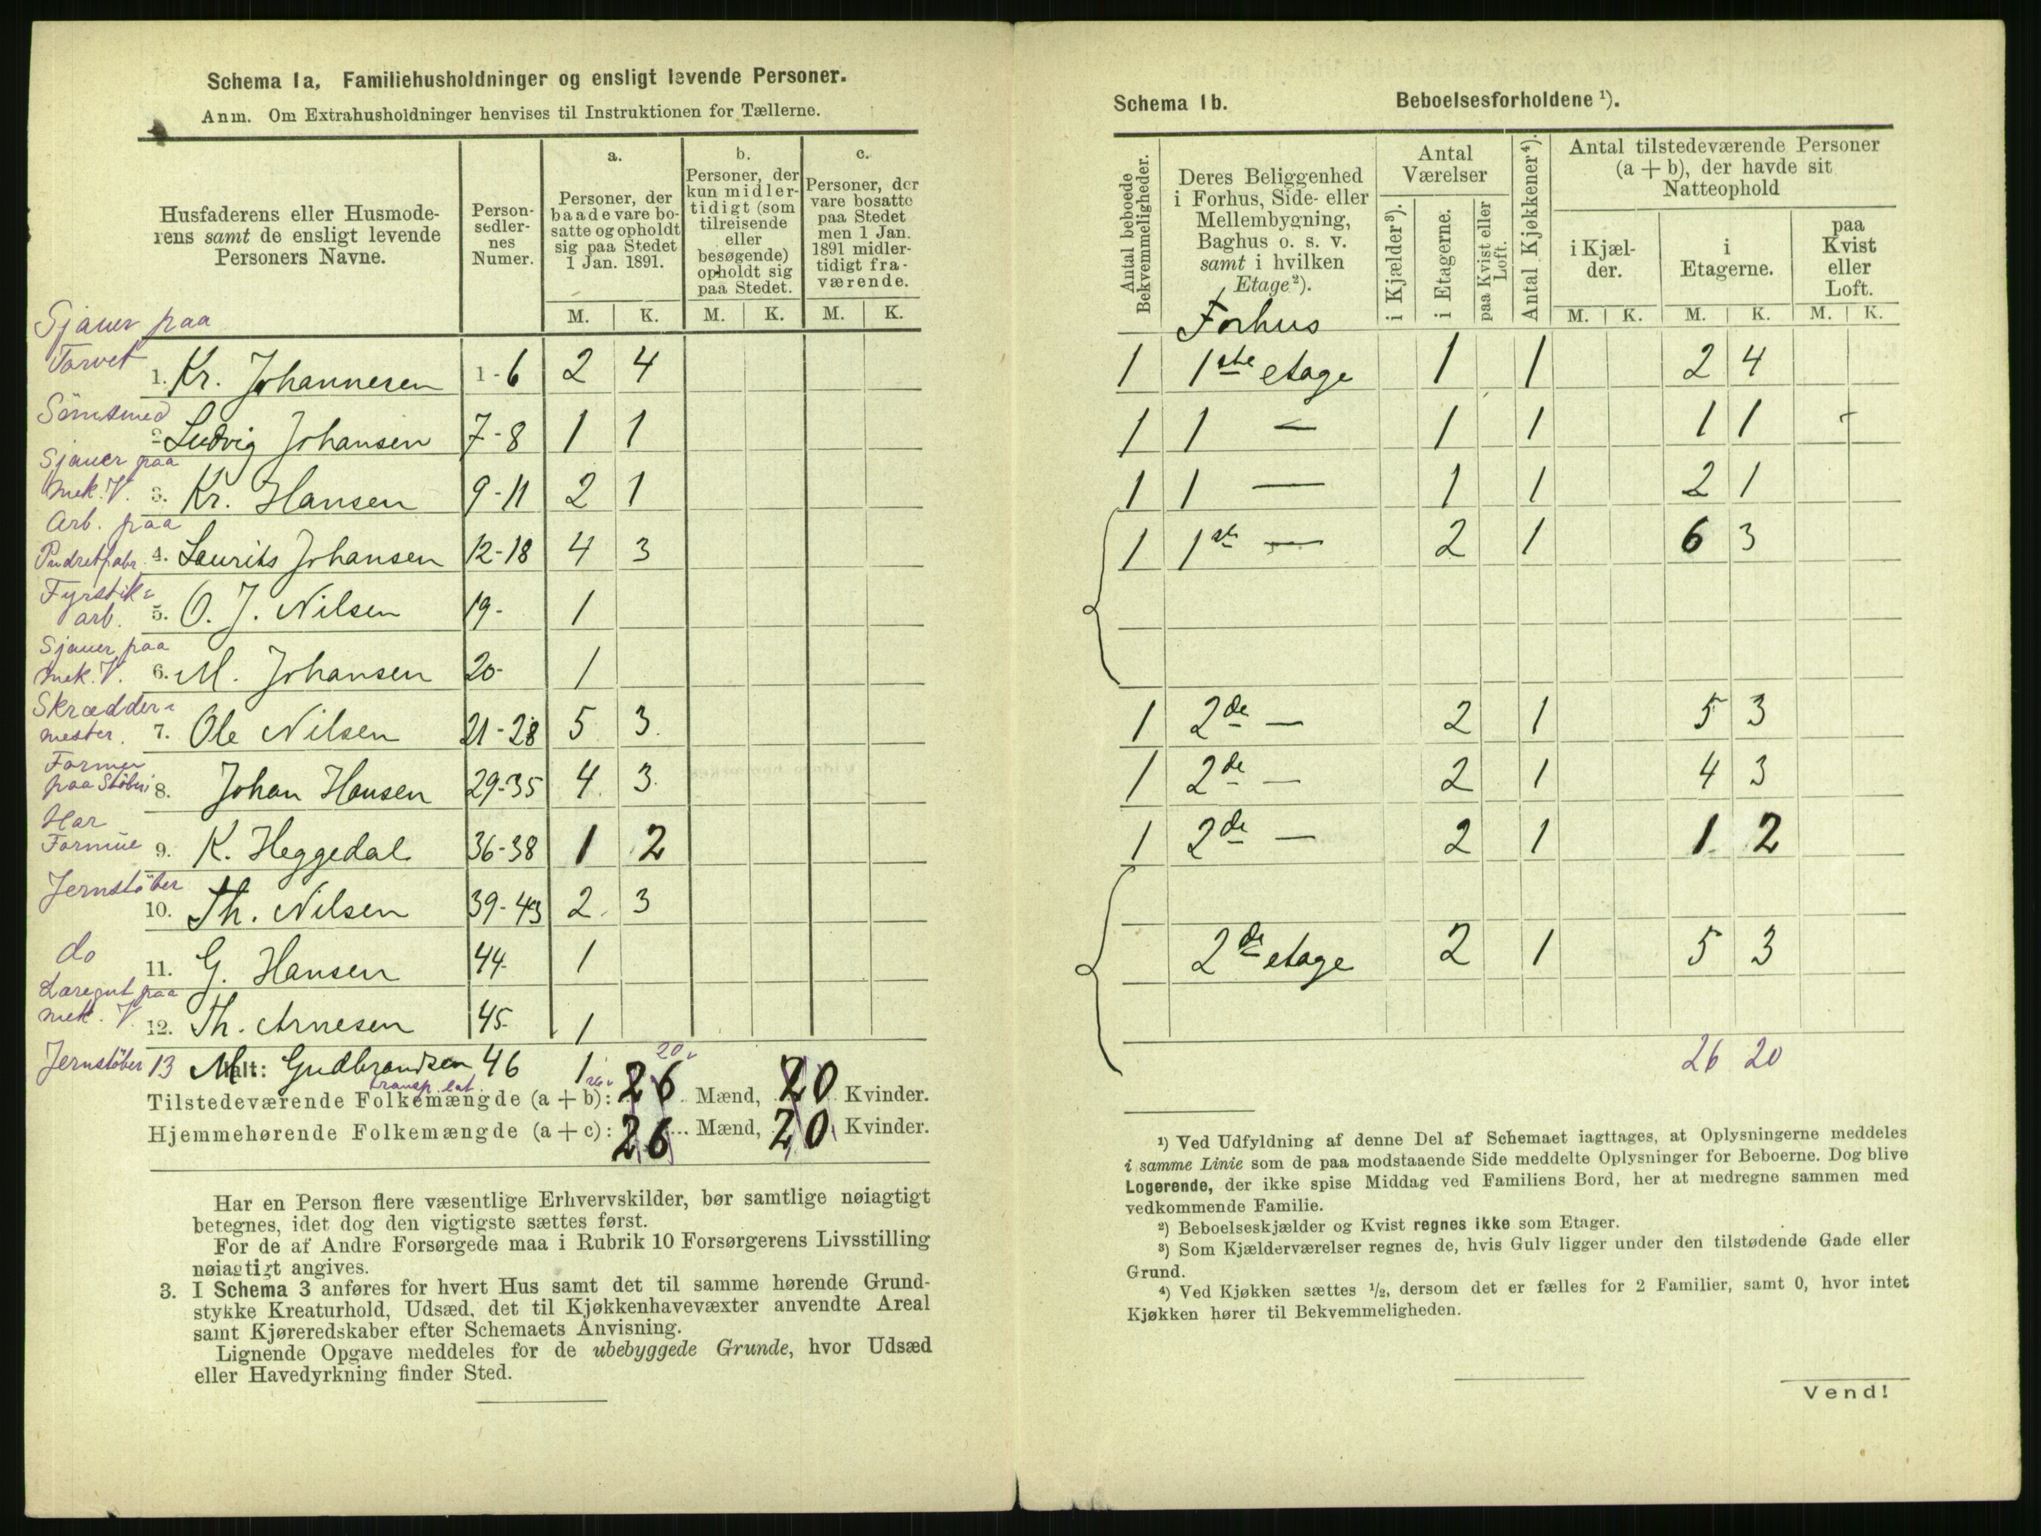 Schema 1a, Familiehusholdninger og ensligt levende Personer.
Anm. Om Extrahusholdninger henvises til Instruktionen for Tællerne.
Husfaderens eller Husmoderens samt de ensligt levende Personers Navne.
Personsedlernes Numer.
a. Personer, der baade vare bosatte og opholdt sig paa Stedet 1 Jan. 1891.
b. Personer, der kun midlertidigt (som tilreisende eller besøgende) opholdt sig paa Stedet.
c. Personer, der vare bosatte paa Stedet men 1 Jan. 1891 midlertidigt fraværende.
M. K. M. K. M. K.
Sjauer paa Torvet 1. Kr. Johannesen 1-6 2 4
Sömsmed 2. Ludvig Johansen 7-8 1 1
Sjauer paa mek. V. 3. Kr. Hansen 9-11 2 1
Arb. paa Pudretfabr. 4. Laurits Johansen 12-18 4 3
Fyrstikarb. 5. O. J. Nilsen 19- 1
Sjauer paa mek. V. 6. M. Johansen 20- 1
Skræddermester. 7. Ole Nilsen 21-28 5 3
Former paa Støberi 8. Johan Hansen 29-35 4 3
Har Formue 9. K. Heggedal 36-38 1 2
Jernstöber 10. Th. Nilsen 39-43 2 3
do 11. G. Hansen 44- 1
Læregut paa mek. V. 12. Th. Arnesen 45- 1
Jernstöber 13 M. Gudbrandsen 46 1
transp. lat. 26 20
Tilstedeværende Folkemængde (a + b): 26 Mænd, 20 Kvinder.
Hjemmehørende Folkemængde (a + c): 26 Mænd, 20 Kvinder.
Har en Person flere væsentlige Erhvervskilder, bør samtlige nøiagtigt
betegnes, idet dog den vigtigste sættes først.
For de af Andre Forsørgede maa i Rubrik 10 Forsørgerens Livsstilling
nøiagtigt angives.
3. I Schema 3 anføres for hvert Hus samt det til samme hørende Grund-
stykke Kreaturhold, Udsæd, det til Kjøkkenhavevæxter anvendte Areal
samt Kjøreredskaber efter Schemaets Anvisning.
Lignende Opgave meddeles for de ubebyggede Grunde, hvor Udsæd
eller Havedyrkning finder Sted.
Schema 1b. Beboelsesforholdene ¹).
Antal beboede Bekvemmeligheder.
Deres Beliggenhed i Forhus, Side- eller Mellembygning, Baghus o. s. v. samt i hvilken Etage²).
Antal Værelser
i Kjælder³).
i Etagerne.
paa Kvist eller Loft.
Antal Kjøkkener⁴).
Antal tilstedeværende Personer (a + b), der havde sit Natteophold
i Kjælder.
i Etagerne.
paa Kvist eller Loft.
M. K. M. K. M. K.
Forhus
1 1ste etage 1 1 2 4
1 1 — 1 1 1 1
1 1 — 1 1 2 1
1 1ste — 2 1 6 3
1 2de — 2 1 5 3
1 2de — 2 1 4 3
1 2de — 2 1 1 2
2de etage 2 1 5 3
26 20
¹) Ved Udfyldning af denne Del af Schemaet iagttages, at Oplysningerne meddeles
i samme Linie som de paa modstaaende Side meddelte Oplysninger for Beboerne. Dog blive
Logerende, der ikke spise Middag ved Familiens Bord, her at medregne sammen med
vedkommende Familie.
²) Beboelseskjælder og Kvist regnes ikke som Etager.
³) Som Kjælderværelser regnes de, hvis Gulv ligger under den tilstødende Gade eller
Grund.
⁴) Ved Kjøkken sættes ½, dersom det er fælles for 2 Familier, samt 0, hvor intet
Kjøkken hører til Bekvemmeligheden.
Vend!